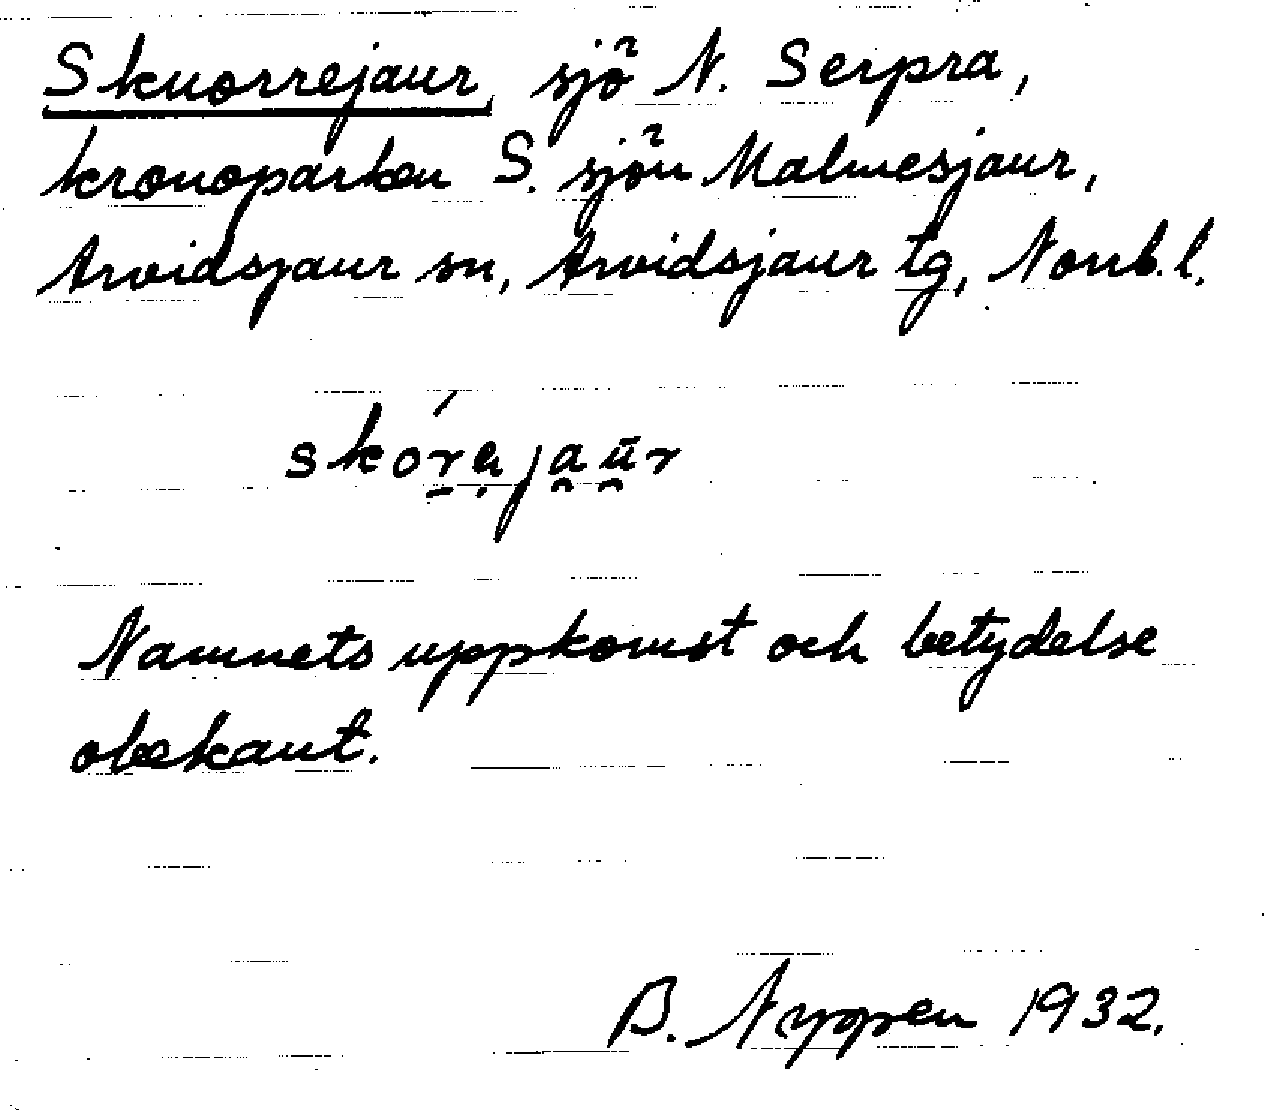 Skuorrejaur, sjö N. Serpra,
kronoparken S. sjön Malmesjaur,
Arvidsjaur sn, Arvidsjaur tg, Norrb. l.
Namnets uppkomst och betydelse
obekant.
B. Nyppen 1932.